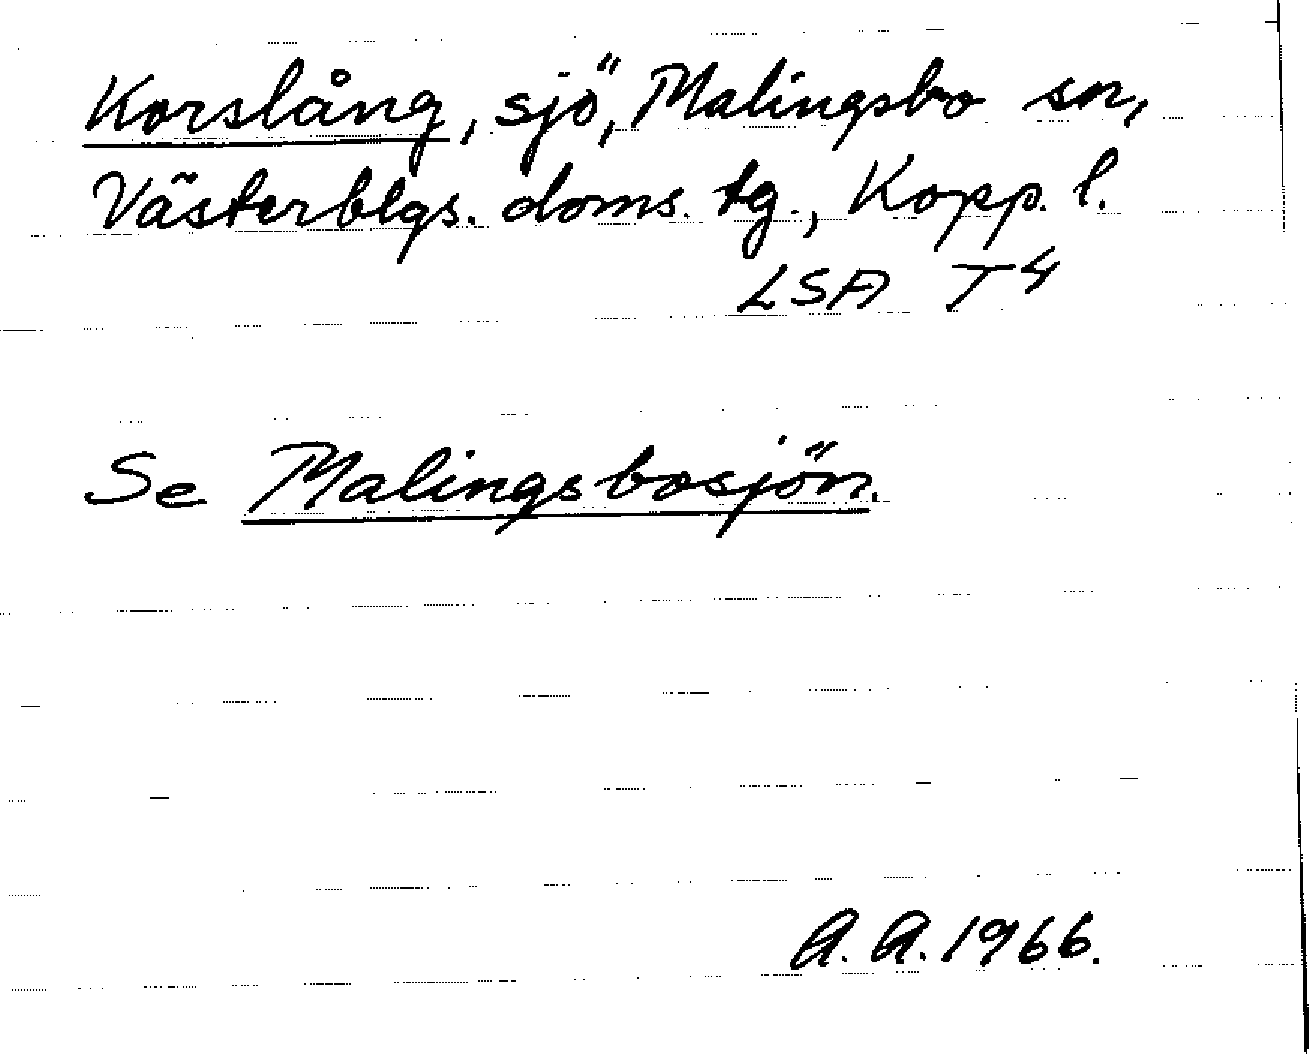 Korslång, sjö, Malingsbo sn,
Västerblgs. doms. tg., Kopp. l.
LSA T4
Se Malingsbosjön.
A. A. 1966.